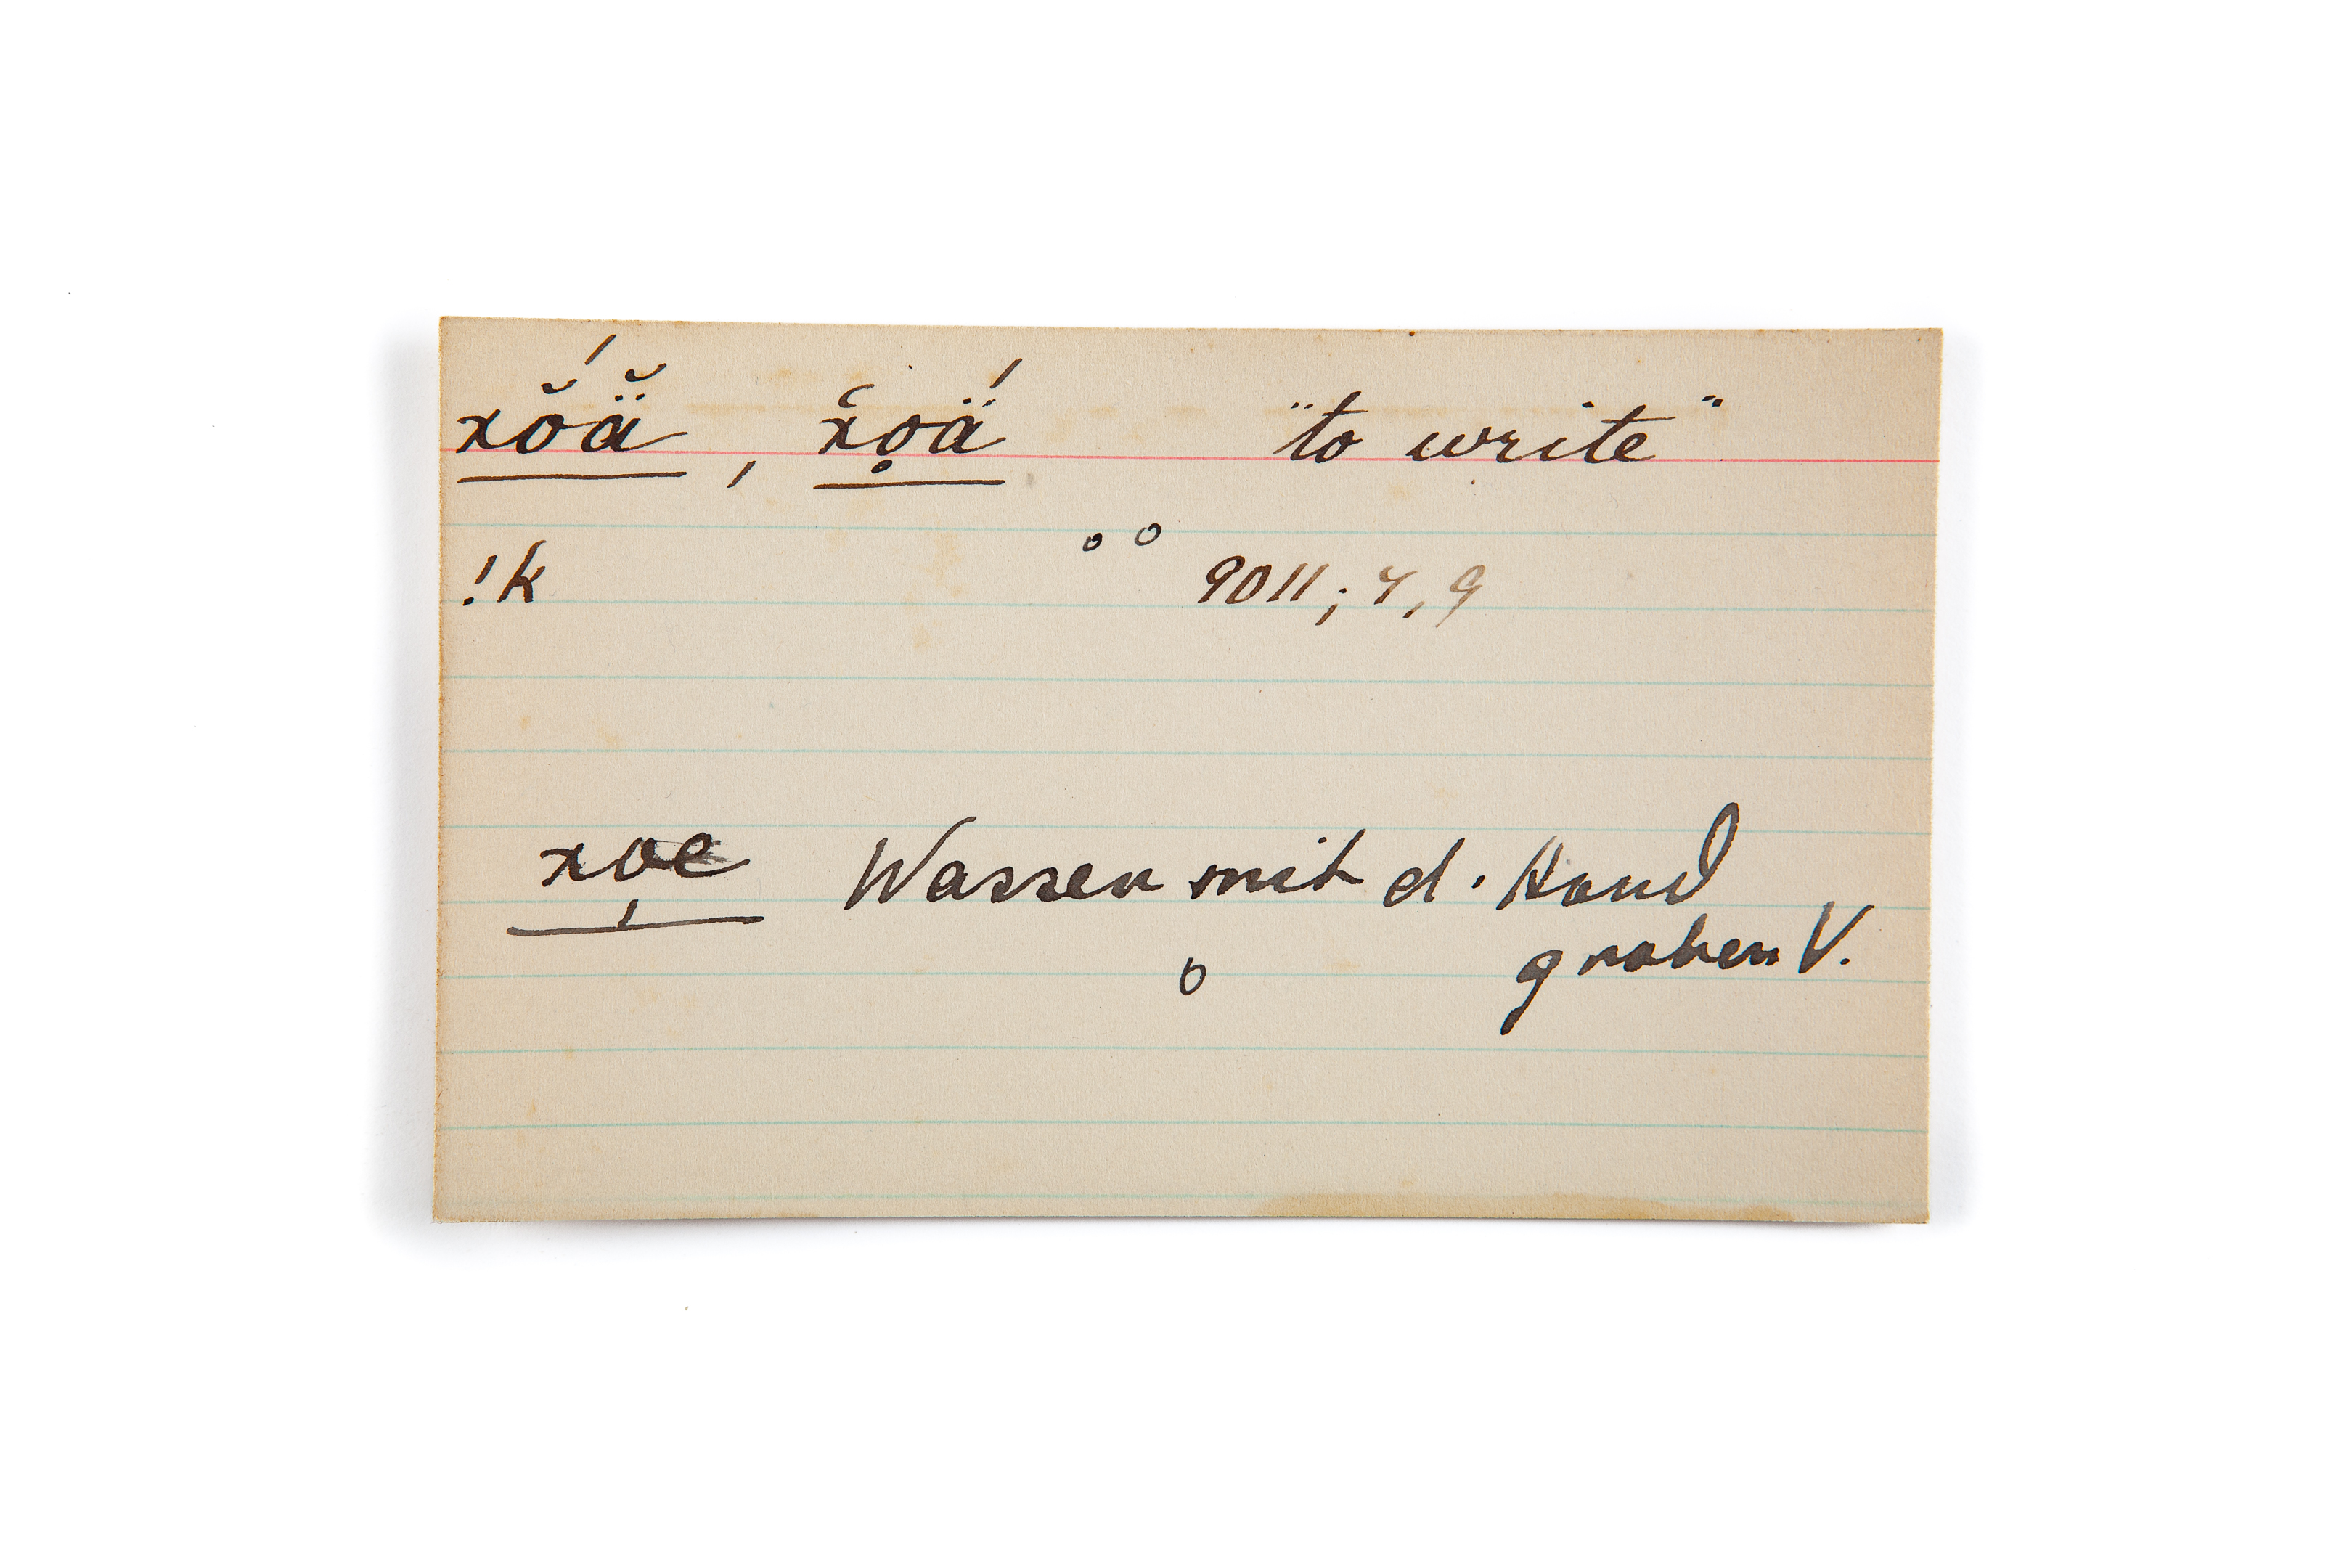 xŏ́ä̆, x̆ọä́ "to write"
!k °° 9011; 7, 9
xo̗e Wasser mit d. Hand
graben V.
o